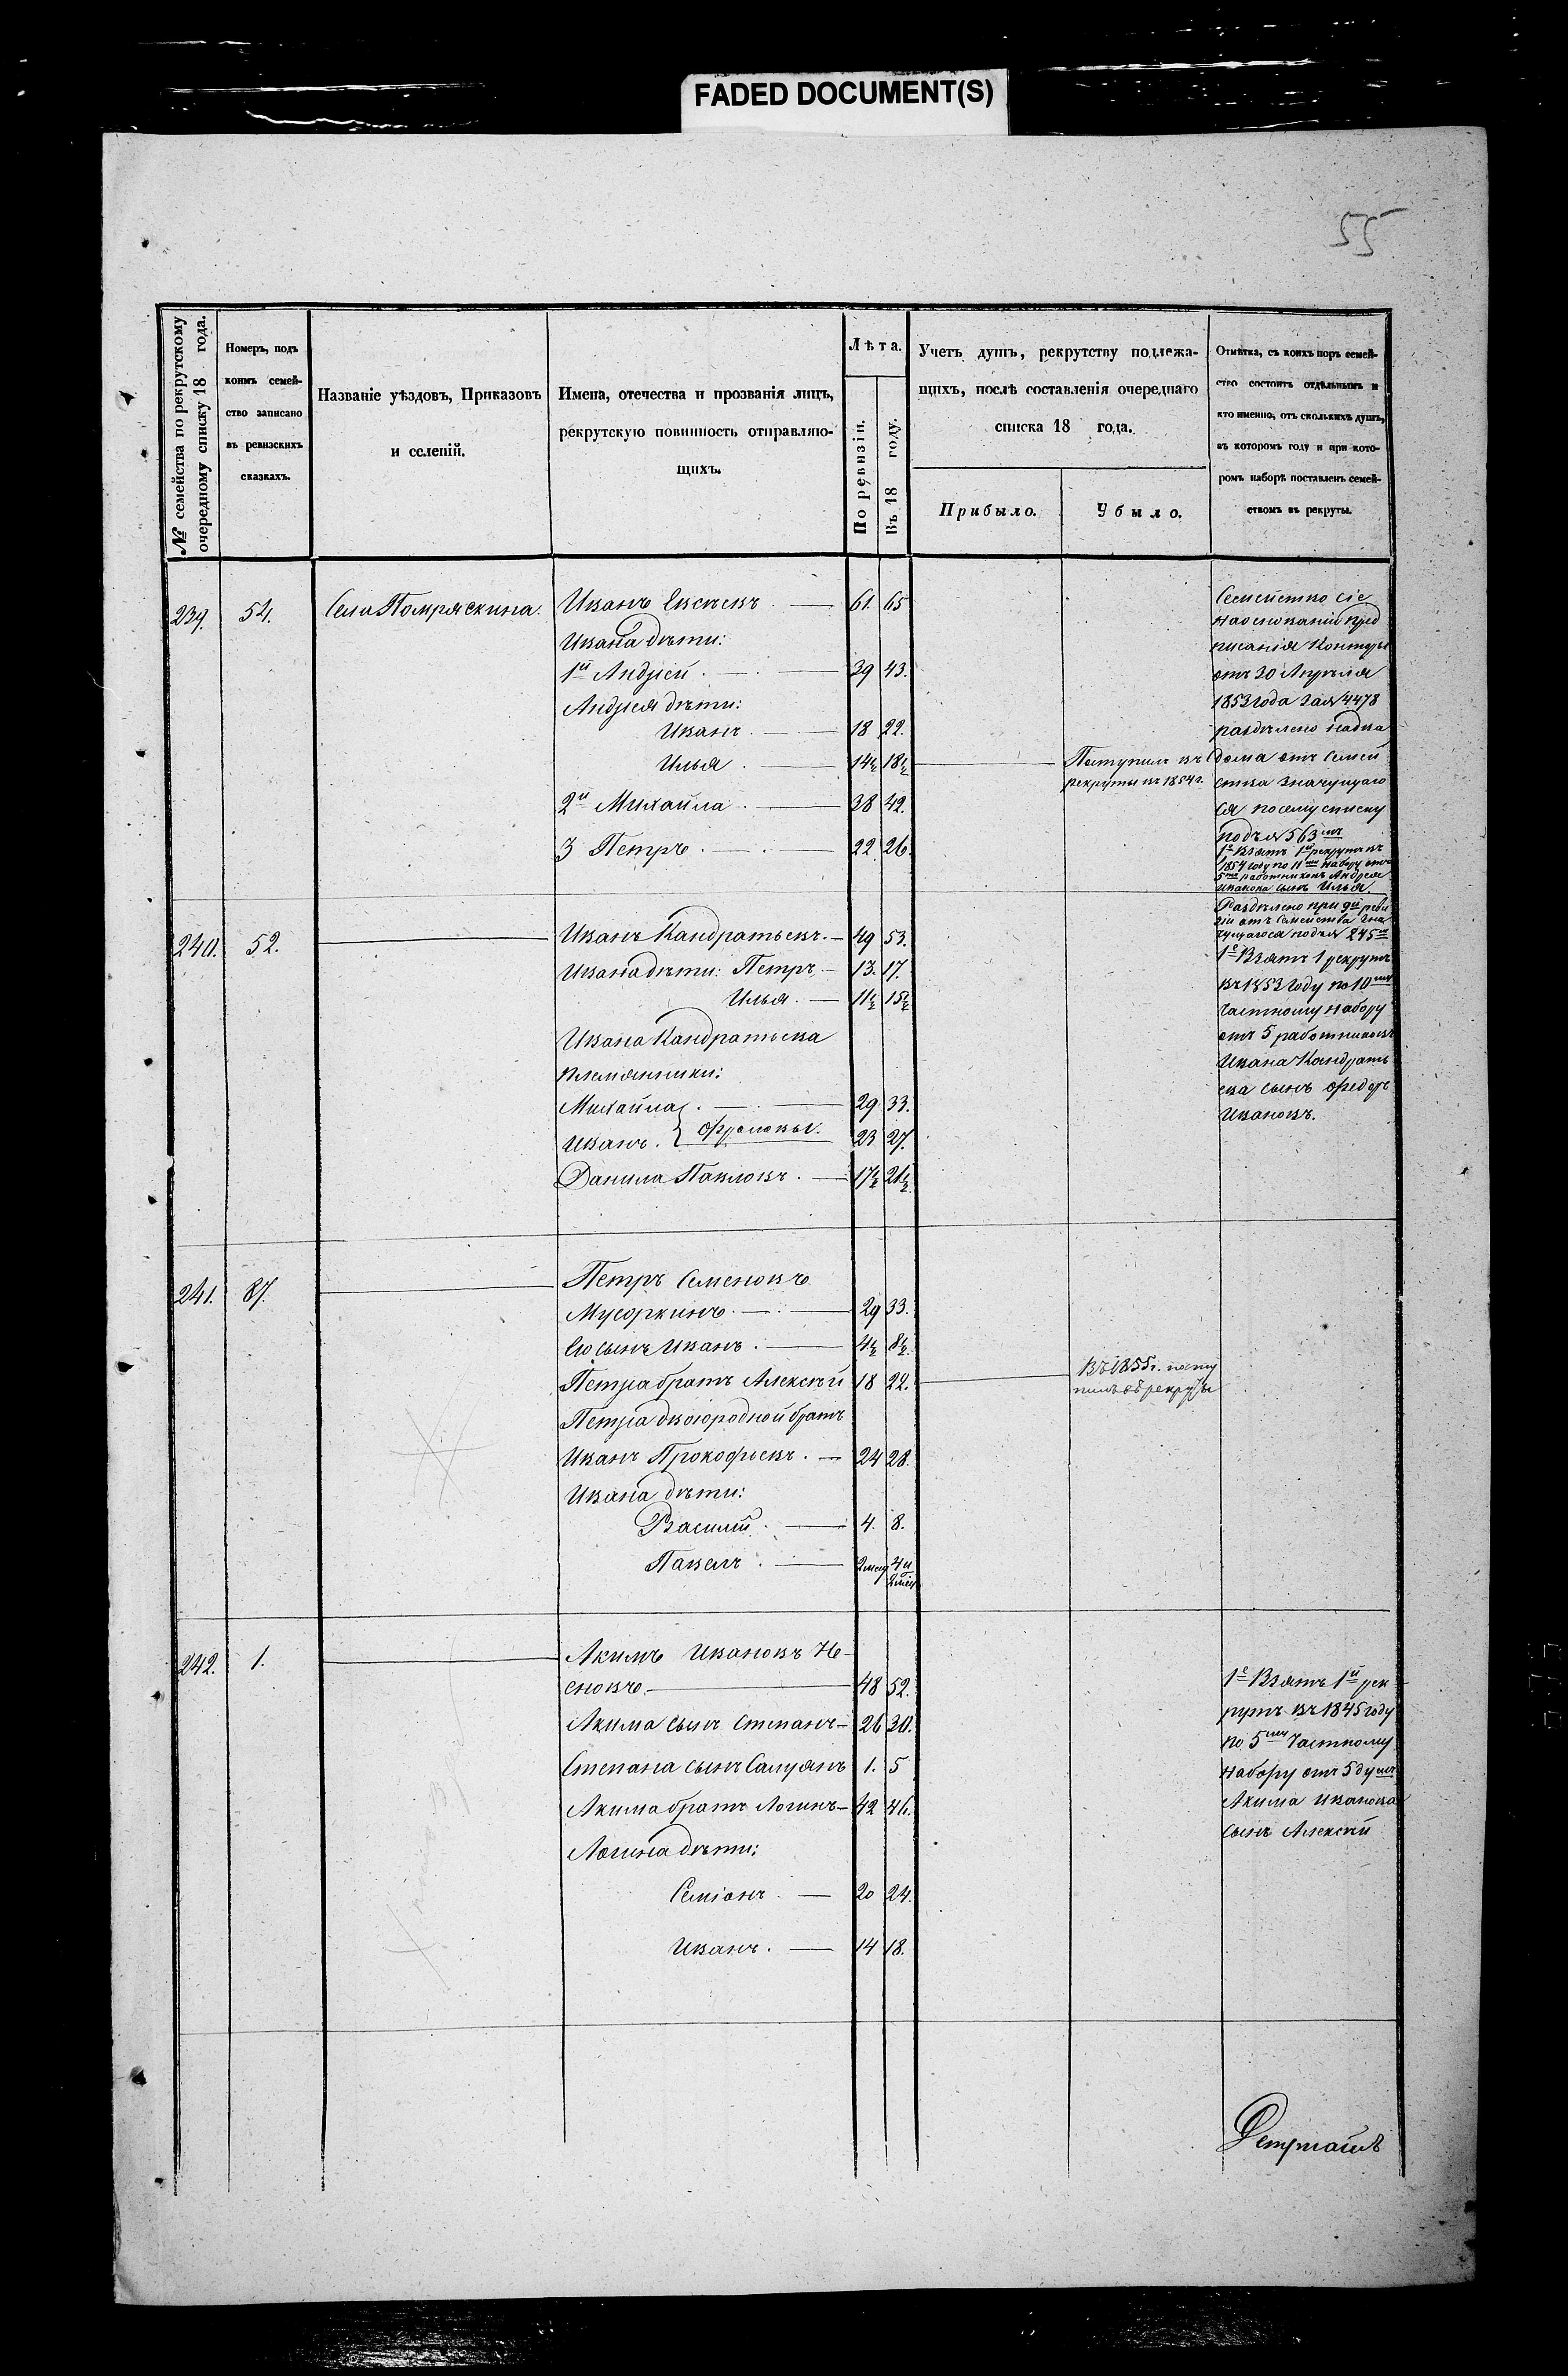 FADED DOCUMENT(S)
55
№ семейства по рекрутскому
очередному списку 18 года.
Номеръ, подъ
коимъ семей-
ство записано
въ ревизскихъ
сказкахъ.
Названіе уѣздовъ, Приказовъ
и селеній.
Имена, отечества и прозванія лицъ,
рекрутскую повинность отправляю-
щихъ.
Лѣта.
По ревизіи.
Въ 18 году.
Учетъ душъ, рекрутству подлежа-
щихъ, послѣ составленія очереднаго
списка 18 года.
Прибыло.
Убыло.
Отмѣтка, съ коихъ поръ семей-
ство состоитъ отдѣльнымъ и
кто именно, отъ сколькихъ душъ,
въ которомъ году и при кото-
ромъ наборѣ поставленъ семей-
ствомъ въ рекруты.
239. 54. Села Помряскина. Иванъ Евсѣевъ 61. 65
Ивана дѣти:
1й Андрей 39 43.
Андрея дѣти:
Иванъ 18 22.
Илья 14½ 18½ Поступилъ въ
рекруты въ 1854 г.
2й Михайла 38 42.
3 Петръ 22 26
Семейство сіе
на основаніи пред
писанія Конторы
отъ 30 Апрѣля
1853 года за № 4478
раздѣлено на два
дома отъ семей
ства значущаго
ся по сему списку
подъ № 563мъ
1е Взятъ 1й рекрутъ въ
1854 году по 11му набору отъ
5ти работниковъ Андрея
Иванова сынъ Илья.
240. 52. Иванъ Кандратьевъ. 49 53.
Ивана дѣти: Петръ 13. 17.
Илья. 11½ 15½
Ивана Кандратьева
племянники:
Михайла 29 33.
Иванъ. } Фроловы. 23 27.
Данила Павловъ. 17½ 21½
Раздѣлено при 9й реви
зіи отъ семейства зна
чущагося подъ № 245м
1е Взятъ 1 рекрутъ
въ 1853 году по 10му
частному набору
отъ 5 работниковъ
Ивана Кандрать
ева сынъ Федоръ
Ивановъ.
241. 87. Петръ Семеновъ
Мусоркинъ. 29 33.
Его сынъ Иванъ. 4½ 8½
Петра братъ Алексѣй 18 22. Въ 1855 г. посту
пилъ въ рекруты
Петра двоюродной братъ
Иванъ Прокофьевъ. 24 28.
Ивана дѣти:
Василій 4. 8.
Павелъ 2 мец 4 и
2 мец
242. 1. Акимъ Ивановъ Не-
еновъ 48 52.
Акима сынъ Степанъ 26 30.
Степана сынъ Самуянъ 1. 5
Акима братъ Логинъ 42 46.
Логина дѣти:
Семіонъ 20 24.
Иванъ. 14 18.
1е Взятъ 1й рек
рутъ въ 1845 году
по 5му частному
набору отъ 5 душъ
Акима Иванова
сынъ Алексѣй